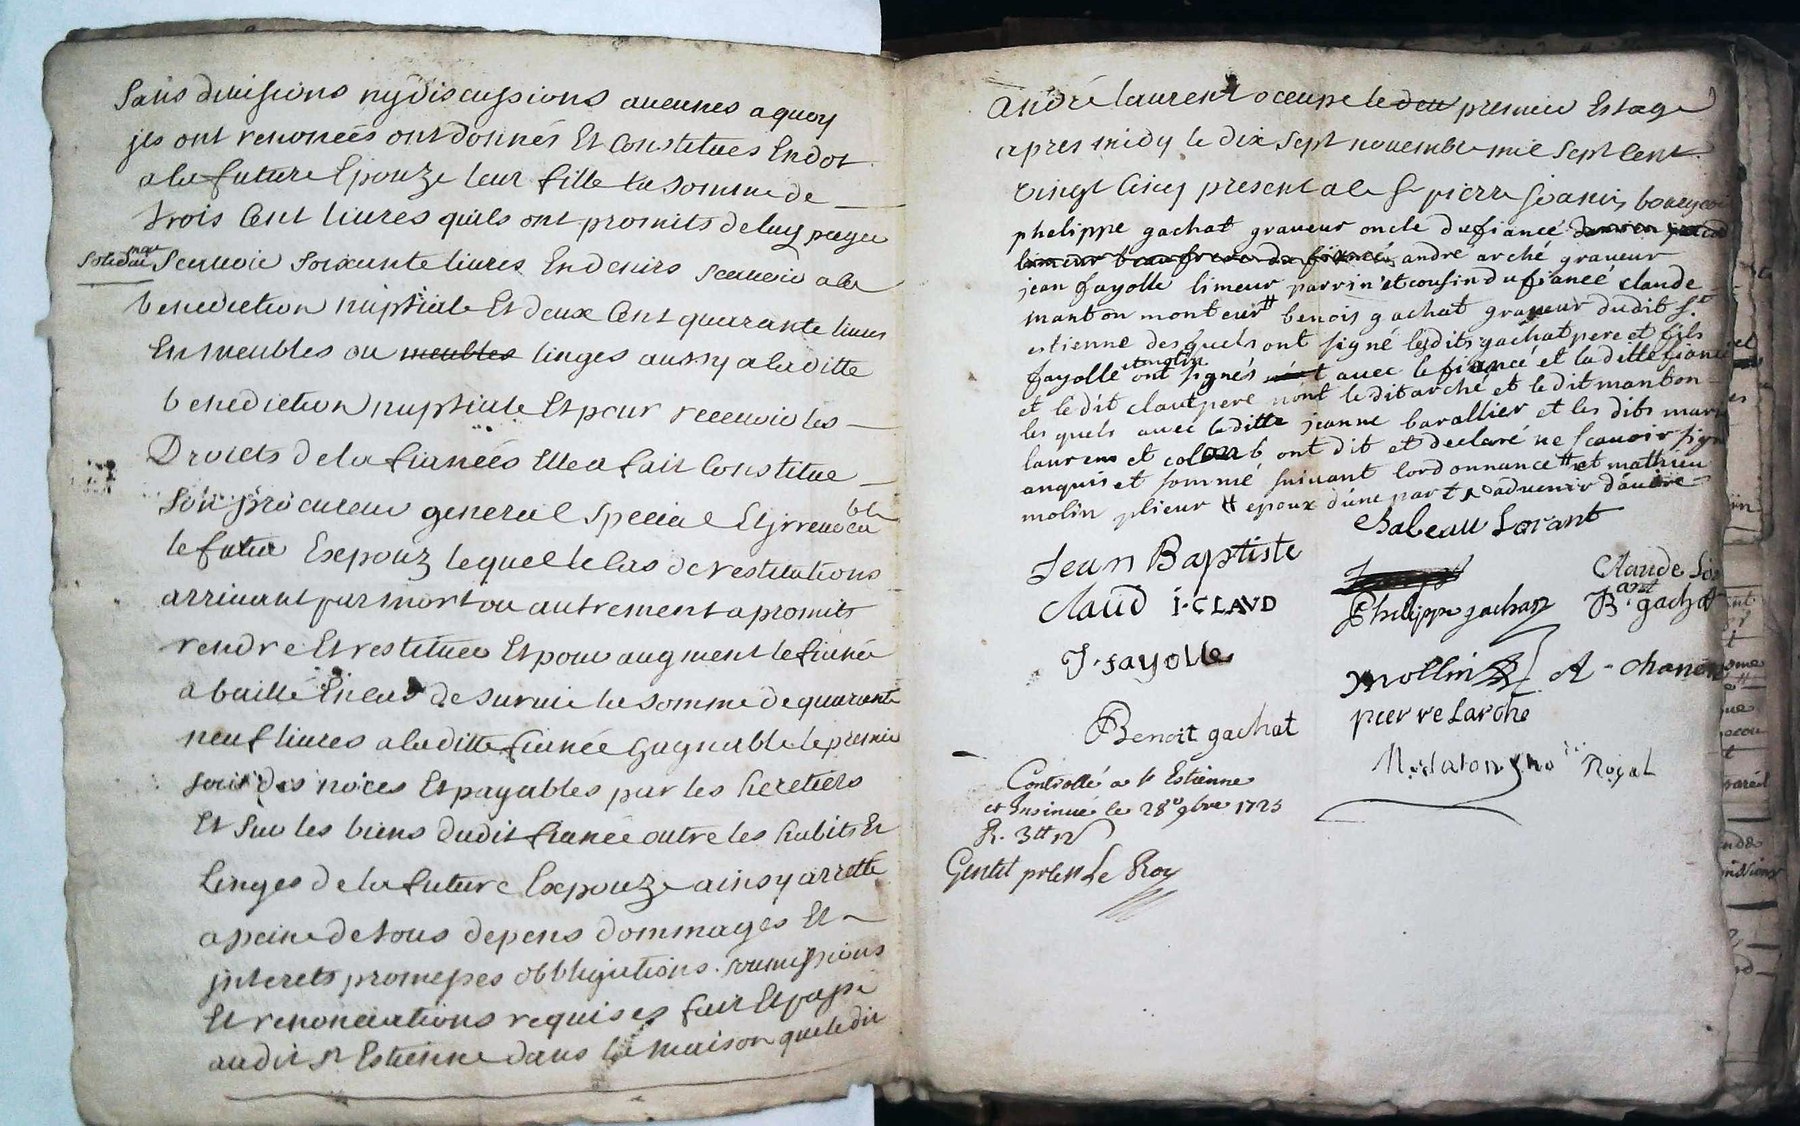 Sans divisions ny discussions aucunes a quoy
jls ont renoncées ont donnés Et Constitues En dot
a la future Epouze leur fille la somme de
trois Cent livres quils ont promits de luy payer
solidairmt Scauoir soixante livres En denirs scauoir a la
benediction nuptiale Et deux Cent quarante livres
En meubles ou meubles linges aussy a la ditte
benediction nuptiale Et pour recevoir les
Droicts de la fiancées Elle a fait Constitué
son procureur general special Et jrrevocable
le futur Expouz lequel le Cas de restitutions
arrivant par mort ou autrement a promits
rendre Et restituer Et pour augment le fiancé
a baillé En cas de survie la somme de quarante
neuf livres a la ditte fiancée gagnable le premier
jour des nôces Et payables par les heretiers
Et sur les biens dudit fiancé outre les habits Et
Linges de la future Expouze ainsy arretté
a peine de tous depens dommages Et
jnterets promesses obbligations soumissions
Et renonciations requises fait Et passé
audit St Estienne dans la maison que le dit
André laurent occupe le premier Estage
apres midy le dix sept novembre mil sept Cent
vingt Cinq present a le Sr pierre bourgeois
phelippe gachat graveur oncle du fiancé
limeur beaufrere du fiancé, andre arché graveur
jean fayolle limeur parrin et cousin du fiancé claude
manton monteur # benois gachat graveur dudit St
estienne desquels ont signé lesdits gachat pere et fils
fayolle et molin ont signés avec le fiancé et la ditte fiancée
et le dit claut pere nont le dit arché et le dit manton
les quels avec laditte jeanne barallier et les dits mariés
laurens et colomb ont dit et declaré ne scavoir signer
anquis et sommé suivant lordonnance # et mathieu
molin plieur # epoux d'une part advenir d'autre
Isabeau Lorant
Jean Baptiste
Claude Lorant
claud I·CLAVD
Phelippe gachat B gachat
J·fayolle
mollin A - chanon
pierre Larché
Benoit gachat
Royal
Controllé a St Estienne
et Insinué le 28e 9bre 1725
R. 3tt 12
Gentil pr le Roy